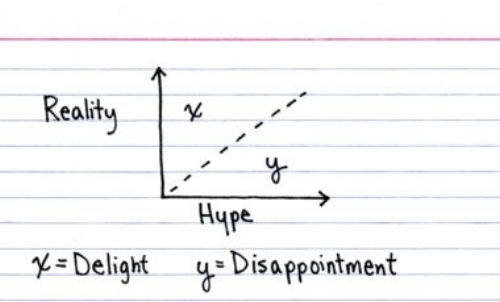 Reality
x
y
Hype
x = Delight y = Disappointment